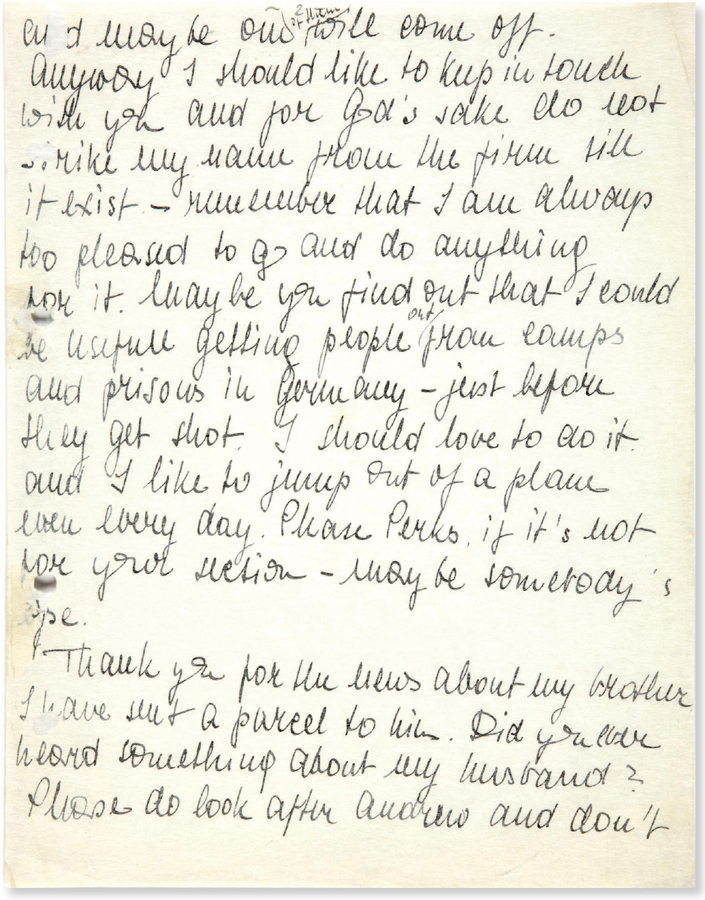 and maybe one of them will come off.
Anyway I should like to keep in touch
with you and for God's sake do not
strike my name from the firm till
it exist – remember that I am always
too pleased to go and do anything
for it. Maybe you find out that I could
be usefull getting people out from camps
and prisons in Germany – just before
they get shot. I should love to do it
and I like to jump out of a plane
even every day. Please Perks, if it's not
for your section – maybe somebody's
else.
Thank you for the news about my brother
I have sent a parcel to him. Did you ever
heard something about my husband?
Please do look after Andrew and don't